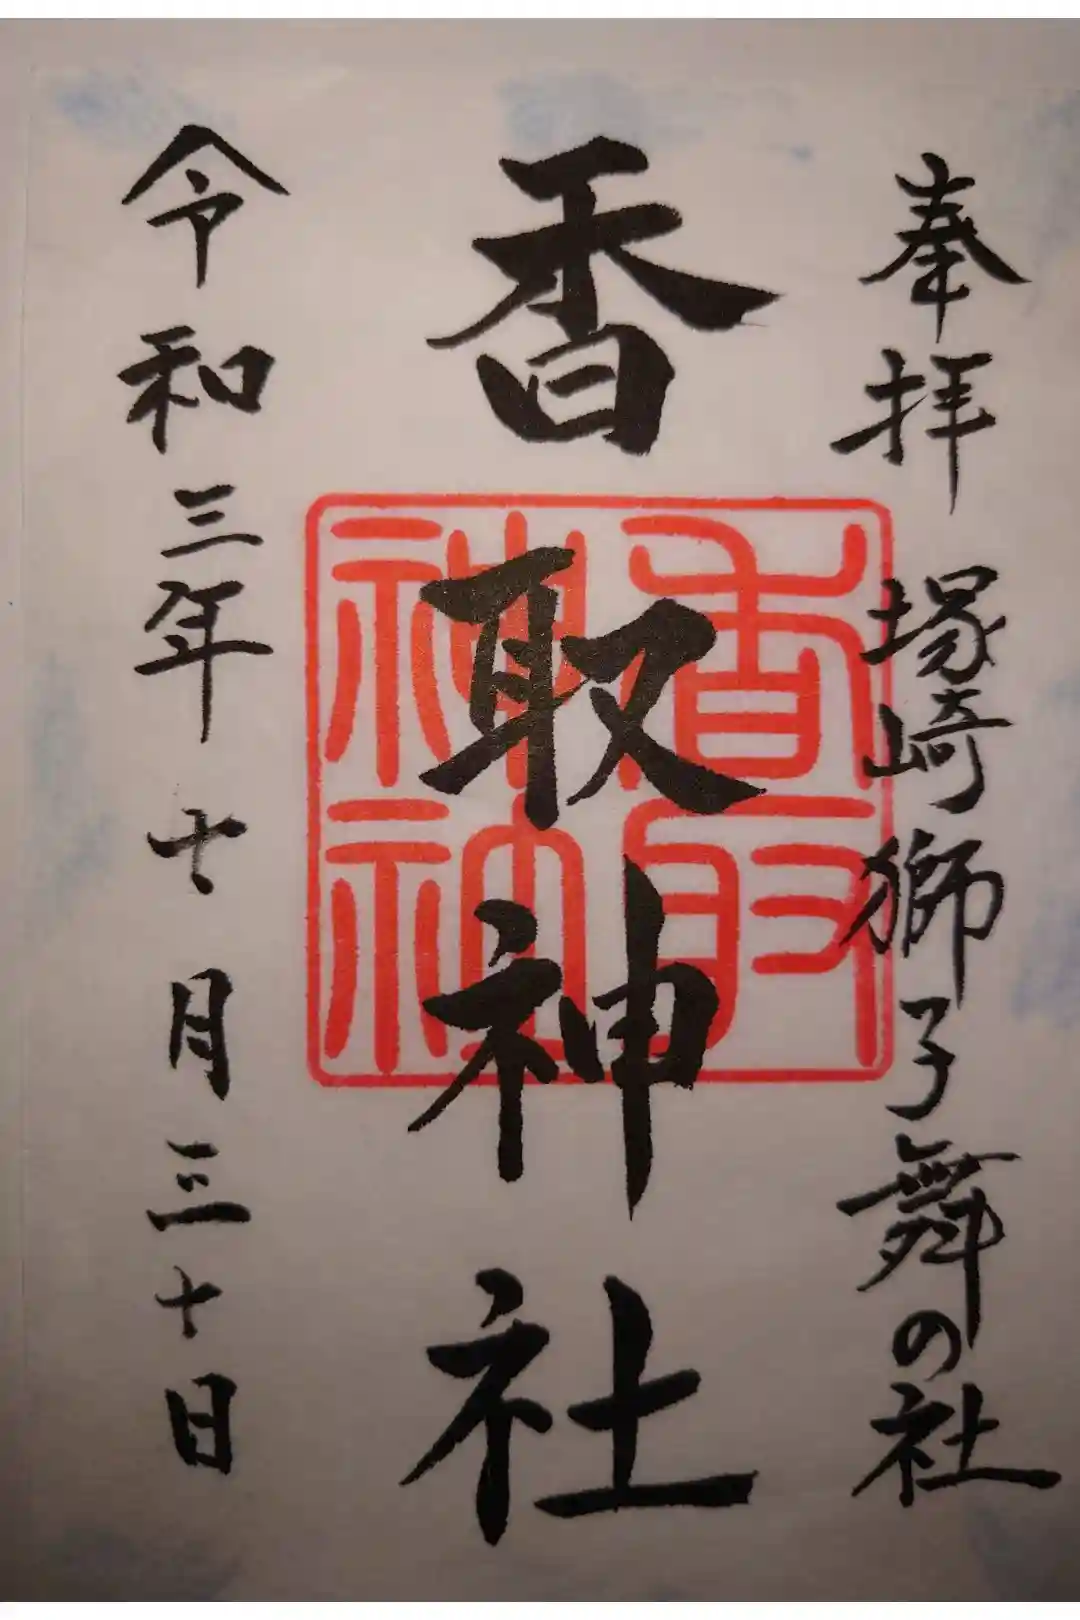 奉拝 塚崎獅子舞の社
香取神社
香取
神社
令和三年 十月三十日